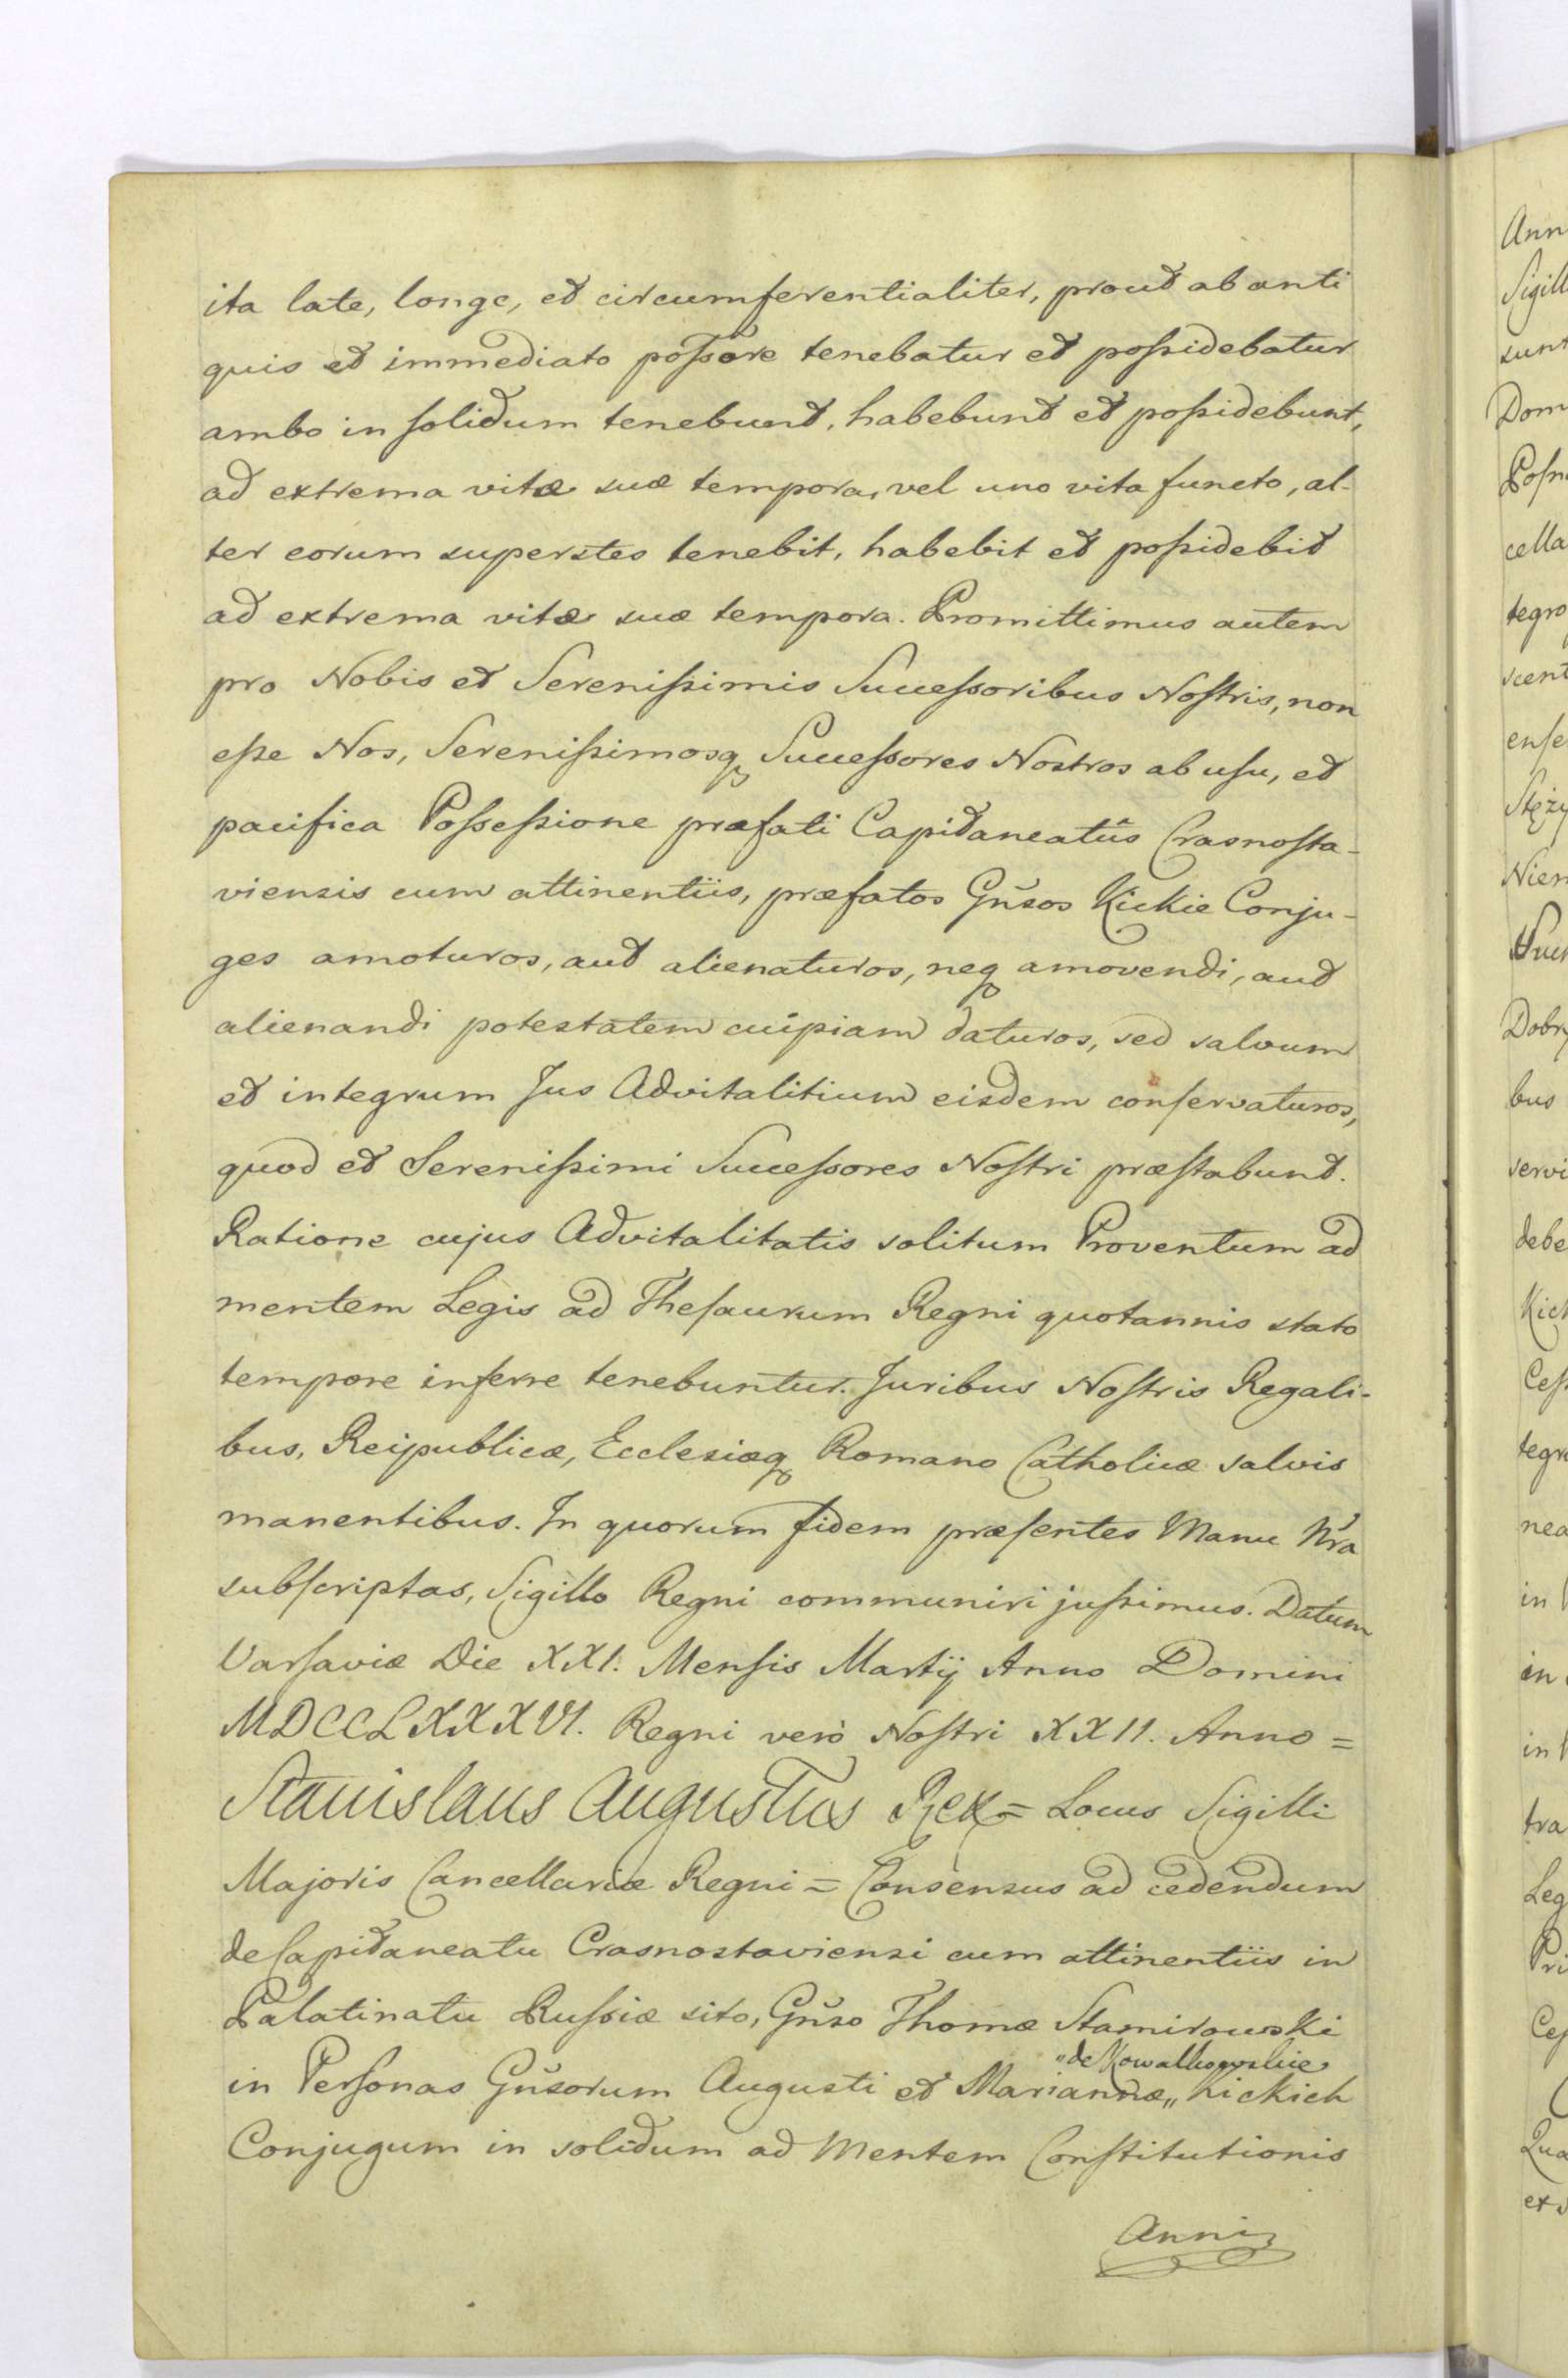 ita late, longe, et circumferentialiter, prout ab anti
quis et immediato possõre tenebatur et possidebatur
ambo in solidum tenebunt, habebunt et possidebunt,
ad extrema vitæ suæ tempora, vel uno vita functo, al-
ter eorum superstes tenebit, habebit et possidebit
ad extrema vitæ suæ tempora. Promittimus autem
pro Nobis et Serenissimis Successoribus Nostris, non
esse Nos, Serenissimosq Successores Nostros ab usu, et
pacifica Possessione præfati Capitaneatûs Crasnosta-
viensis cum attinentiis, præfatos Gñsos Kickie Conju-
ges amoturos, aut alienaturos, neq amovendi, aut
alienandi potestatem cuipiam daturos, sed salvum
et integrum Jus Advitalitium eisdem conservaturos,
quod et Serenissimi Successores Nostri præstabunt.
Ratione cujus Advitalitatis solitum Proventum ad
mentem Legis ad Thesaurum Regni quotannis stato
tempore inferre tenebuntur. Juribus Nostris Regali-
bus, Reipublicæ, Ecclesiæq Romano Catholicæ salvis
manentibus. In quorum fidem præsentes Manu Nr̃a
subscriptas, Sigillo Regni communiri jussimus. Datum
Varsaviæ Die XXI. Mensis Martij Anno Domini
MDCCLXXXVI. Regni verò Nostri XXII. Anno =
Stanislaus Augustus Rex = Locus Sigilli
Majoris Cancellariæ Regni = Consensus ad cedendum
de Capitaneatu Crasnostaviensi cum attinentiis in
Palatinatu Russiæ sito, Gñso Thomæ Stamirowski
"de Kowalkowskie
in Personas Gñsorum Augusti et Mariannæ „ Kickich
Conjugum in solidum ad Mentem Constitutionis
Anni
Ann
Sigill
sunt
Dom
Posn
cella
tegro
scent
ense
Stęży
Nien
Dobr
bus
servi
debe
Kick
Cess
tegr
nea
in
in
in
tra
Leg
Pri
Ces
Qua